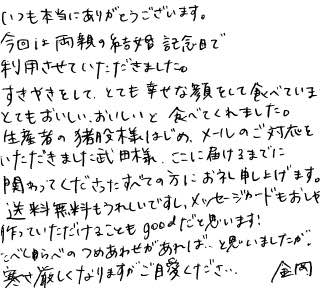 いつも本当にありがとうございます。
今回は両親の結婚記念日で
利用させていただきました。
すきやきをして、とても幸せな顔をして食べていま
とてもおいしい、おいしいと食べてくれました。
生産者の猪股様はじめ、メールのご対応を
いただきました武田様、ここに届けるまでに
関わってくださったすべての方にお礼申し上げます。
送料無料もうれしいですし、メッセージカードもおしゃ
作っていただけることもgoodだと思います!
つめあわせがあれば…と思いましたが。
寒さ厳しくなりますがご自愛くださ… 金岡